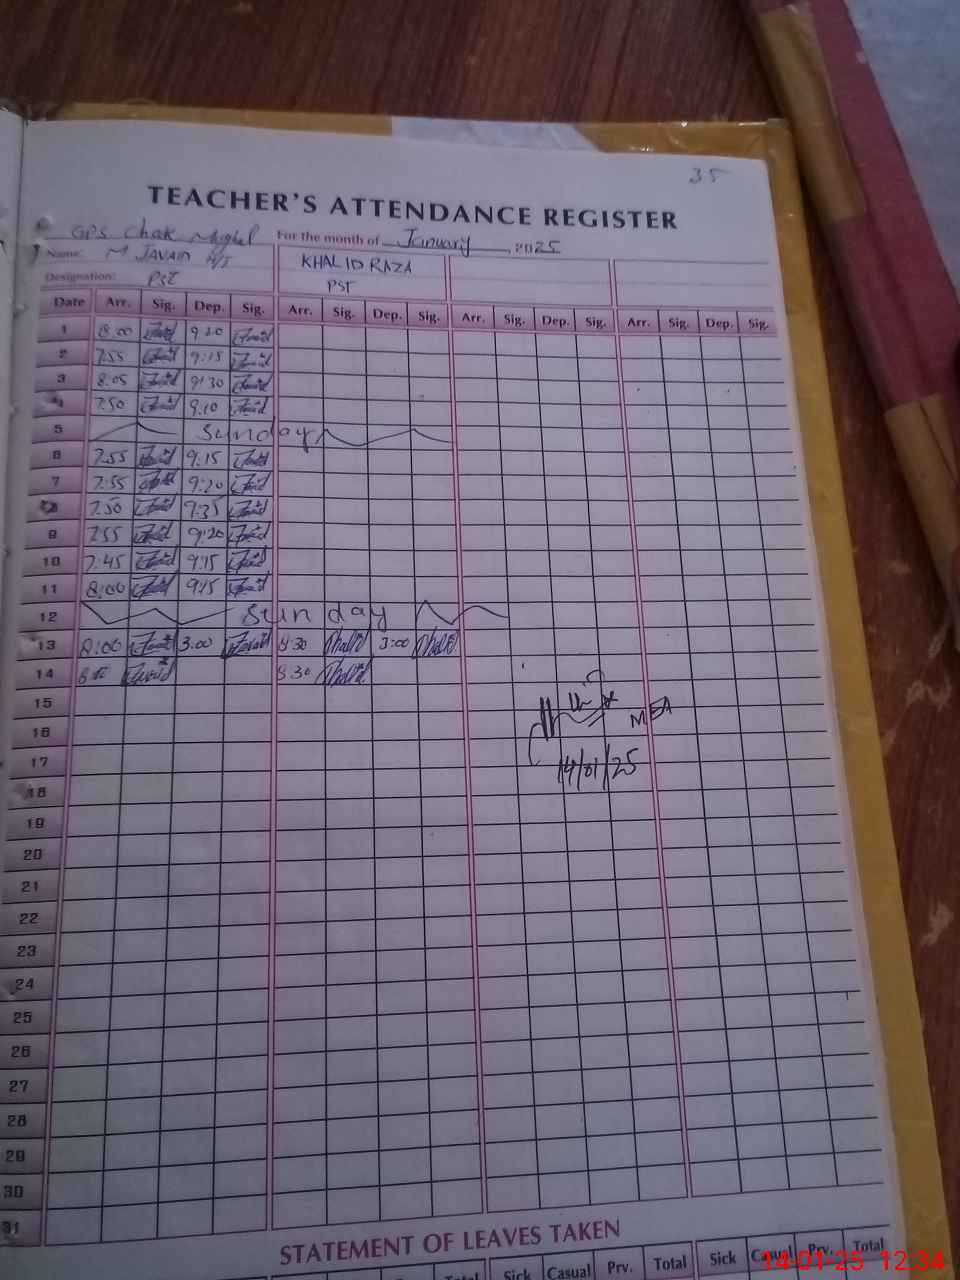 35
TEACHER'S ATTENDANCE REGISTER
GPS Chak For the month of January, 2025
Name: M JAVAID H/T KHALID RAZA
Designation: PST PST
Date Arr. Sig. Dep. Sig. Arr. Sig. Dep. Sig. Arr. Sig. Dep. Sig. Arr. Sig. Dep. Sig.
1 8:00 Javaid 9:20 Javaid
2 7:55 Javaid 9:15 Javaid
3 8:05 Javaid 9:30 Javaid
4 7:50 Javaid 9:10 Javaid
5 Sunday
6 7:55 Javaid 9:15 Javaid
7 7:55 Javaid 9:20 Javaid
8 7:50 Javaid 9:35 Javaid
9 7:55 Javaid 9:20 Javaid
10 7:45 Javaid 9:15 Javaid
11 8:00 Javaid 9:15 Javaid
12 Sunday
13 8:00 Javaid 3:00 Javaid 8:30 Khalid 3:00 Khalid
14 8:00 Javaid 8:30 Khalid
15
16 MEA
17 14/01/25
18
19
20
21
22
23
24
25
26
27
28
29
30
31
STATEMENT OF LEAVES TAKEN
Total Sick Casual Prv. Total Sick Casual Prv. Total
14-01-25 12:34